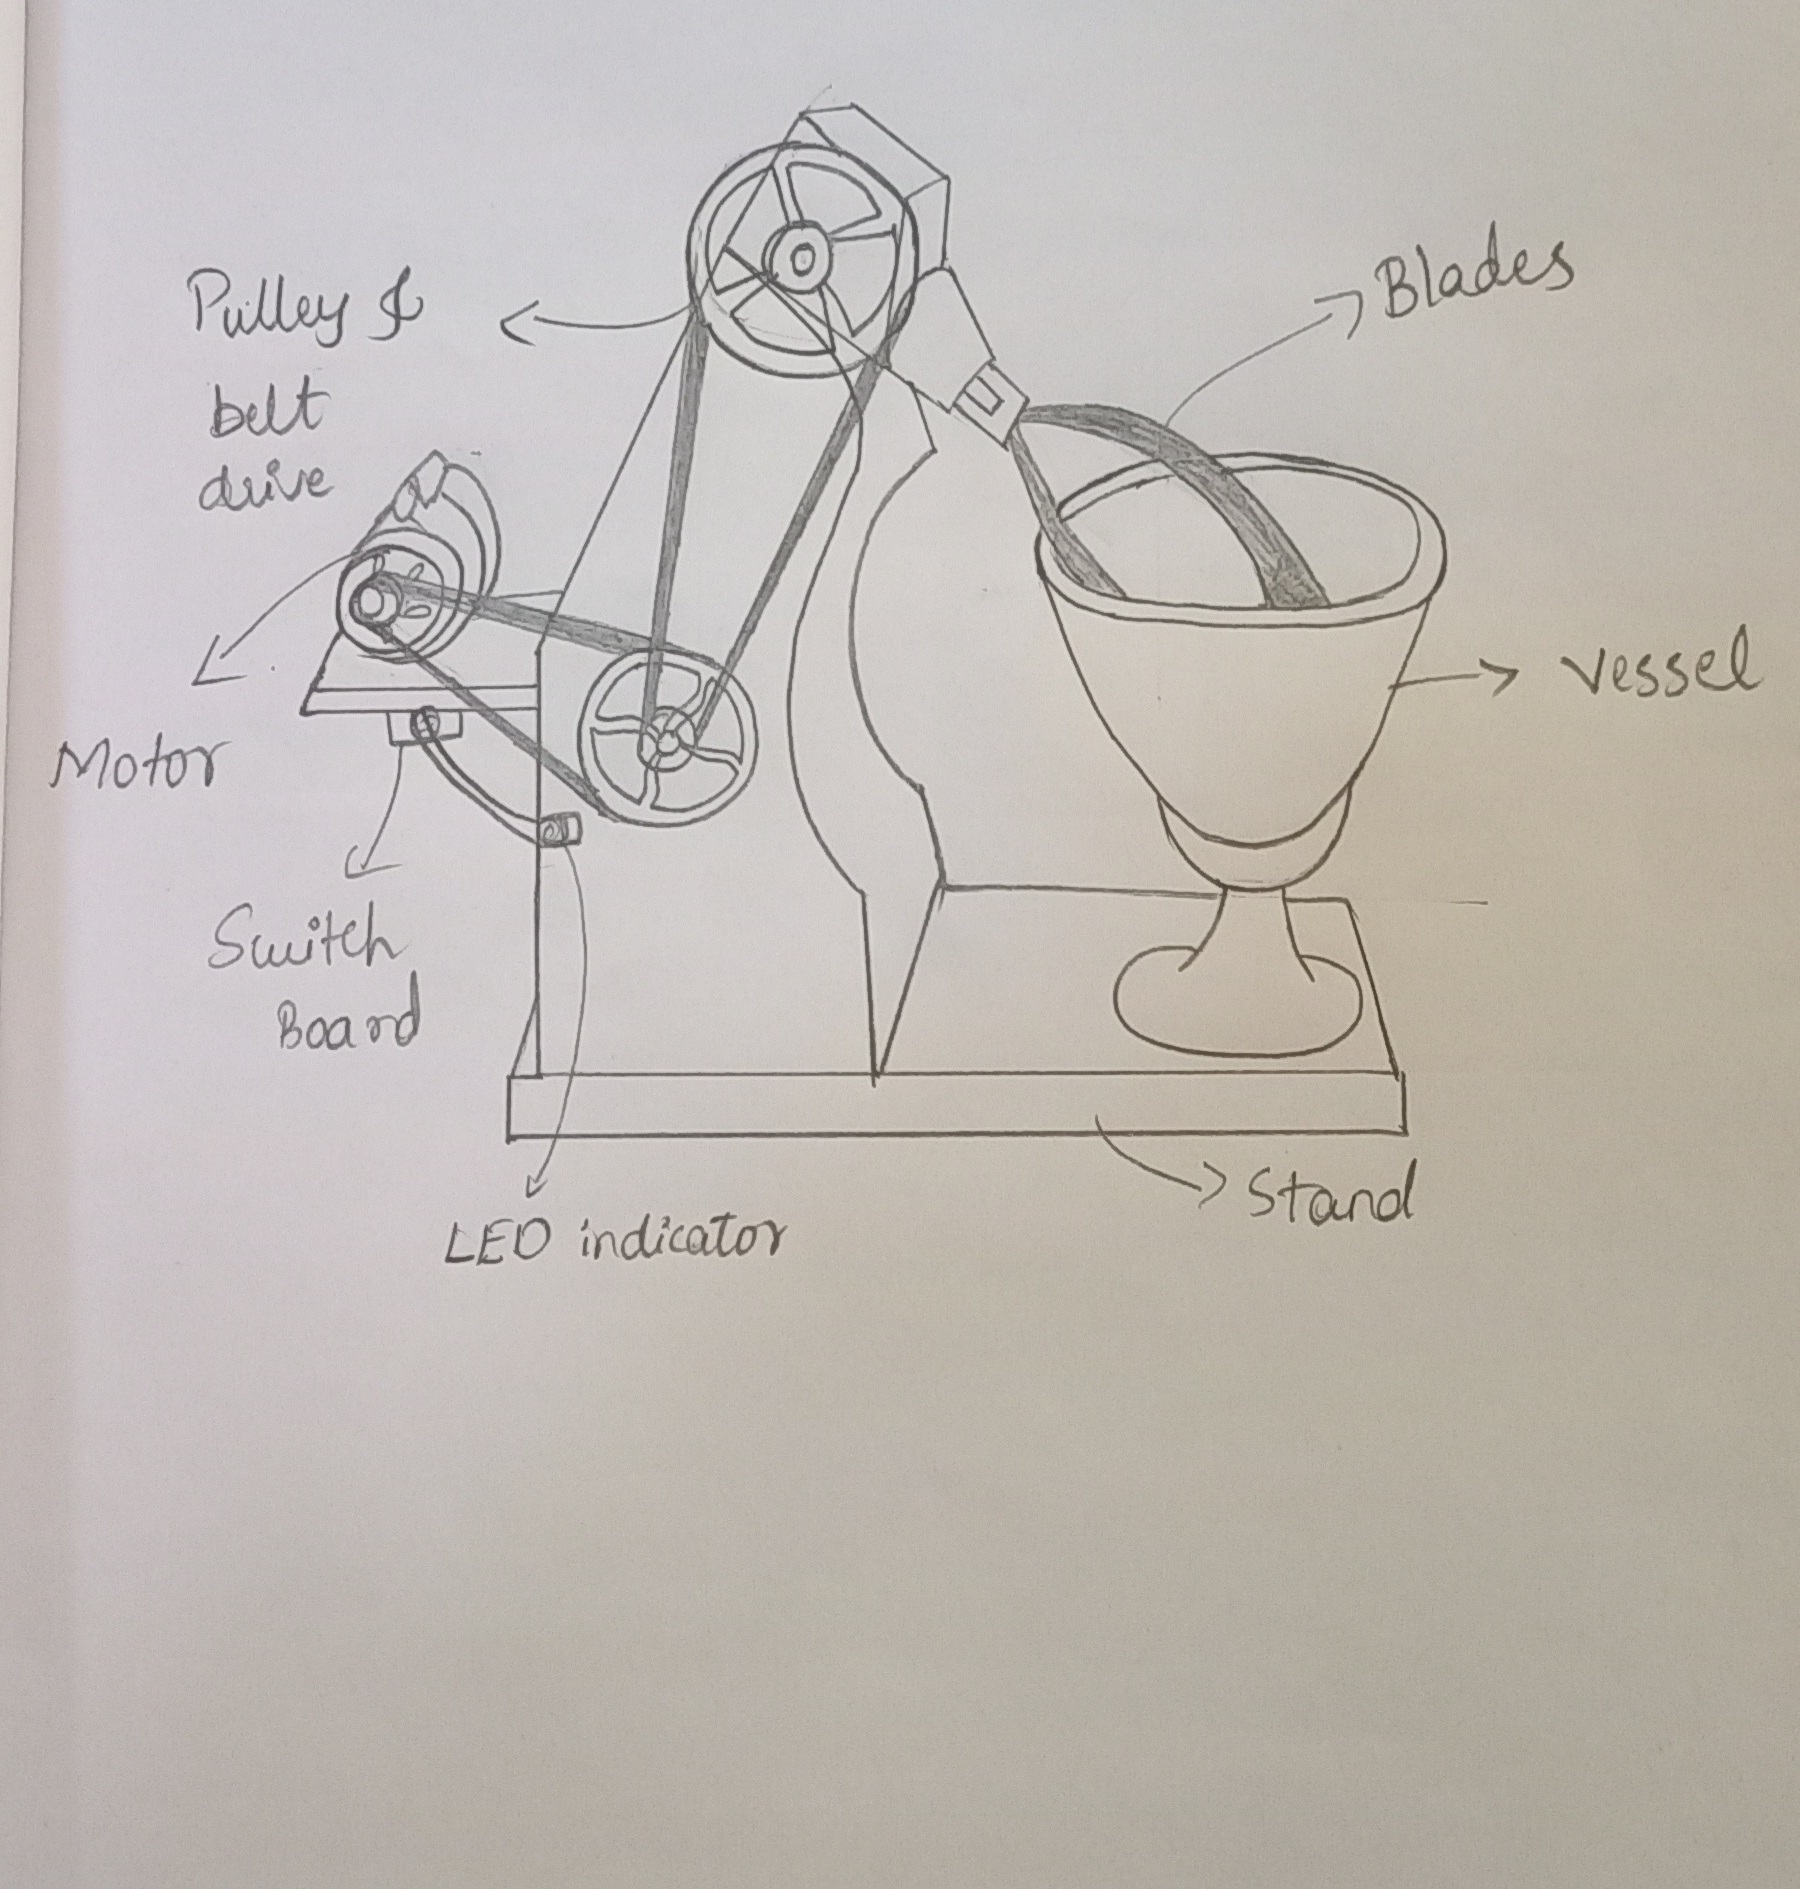 Pulley &
belt
drive
Blades
Vessel
Motor
Switch
Board
Stand
LED indicator